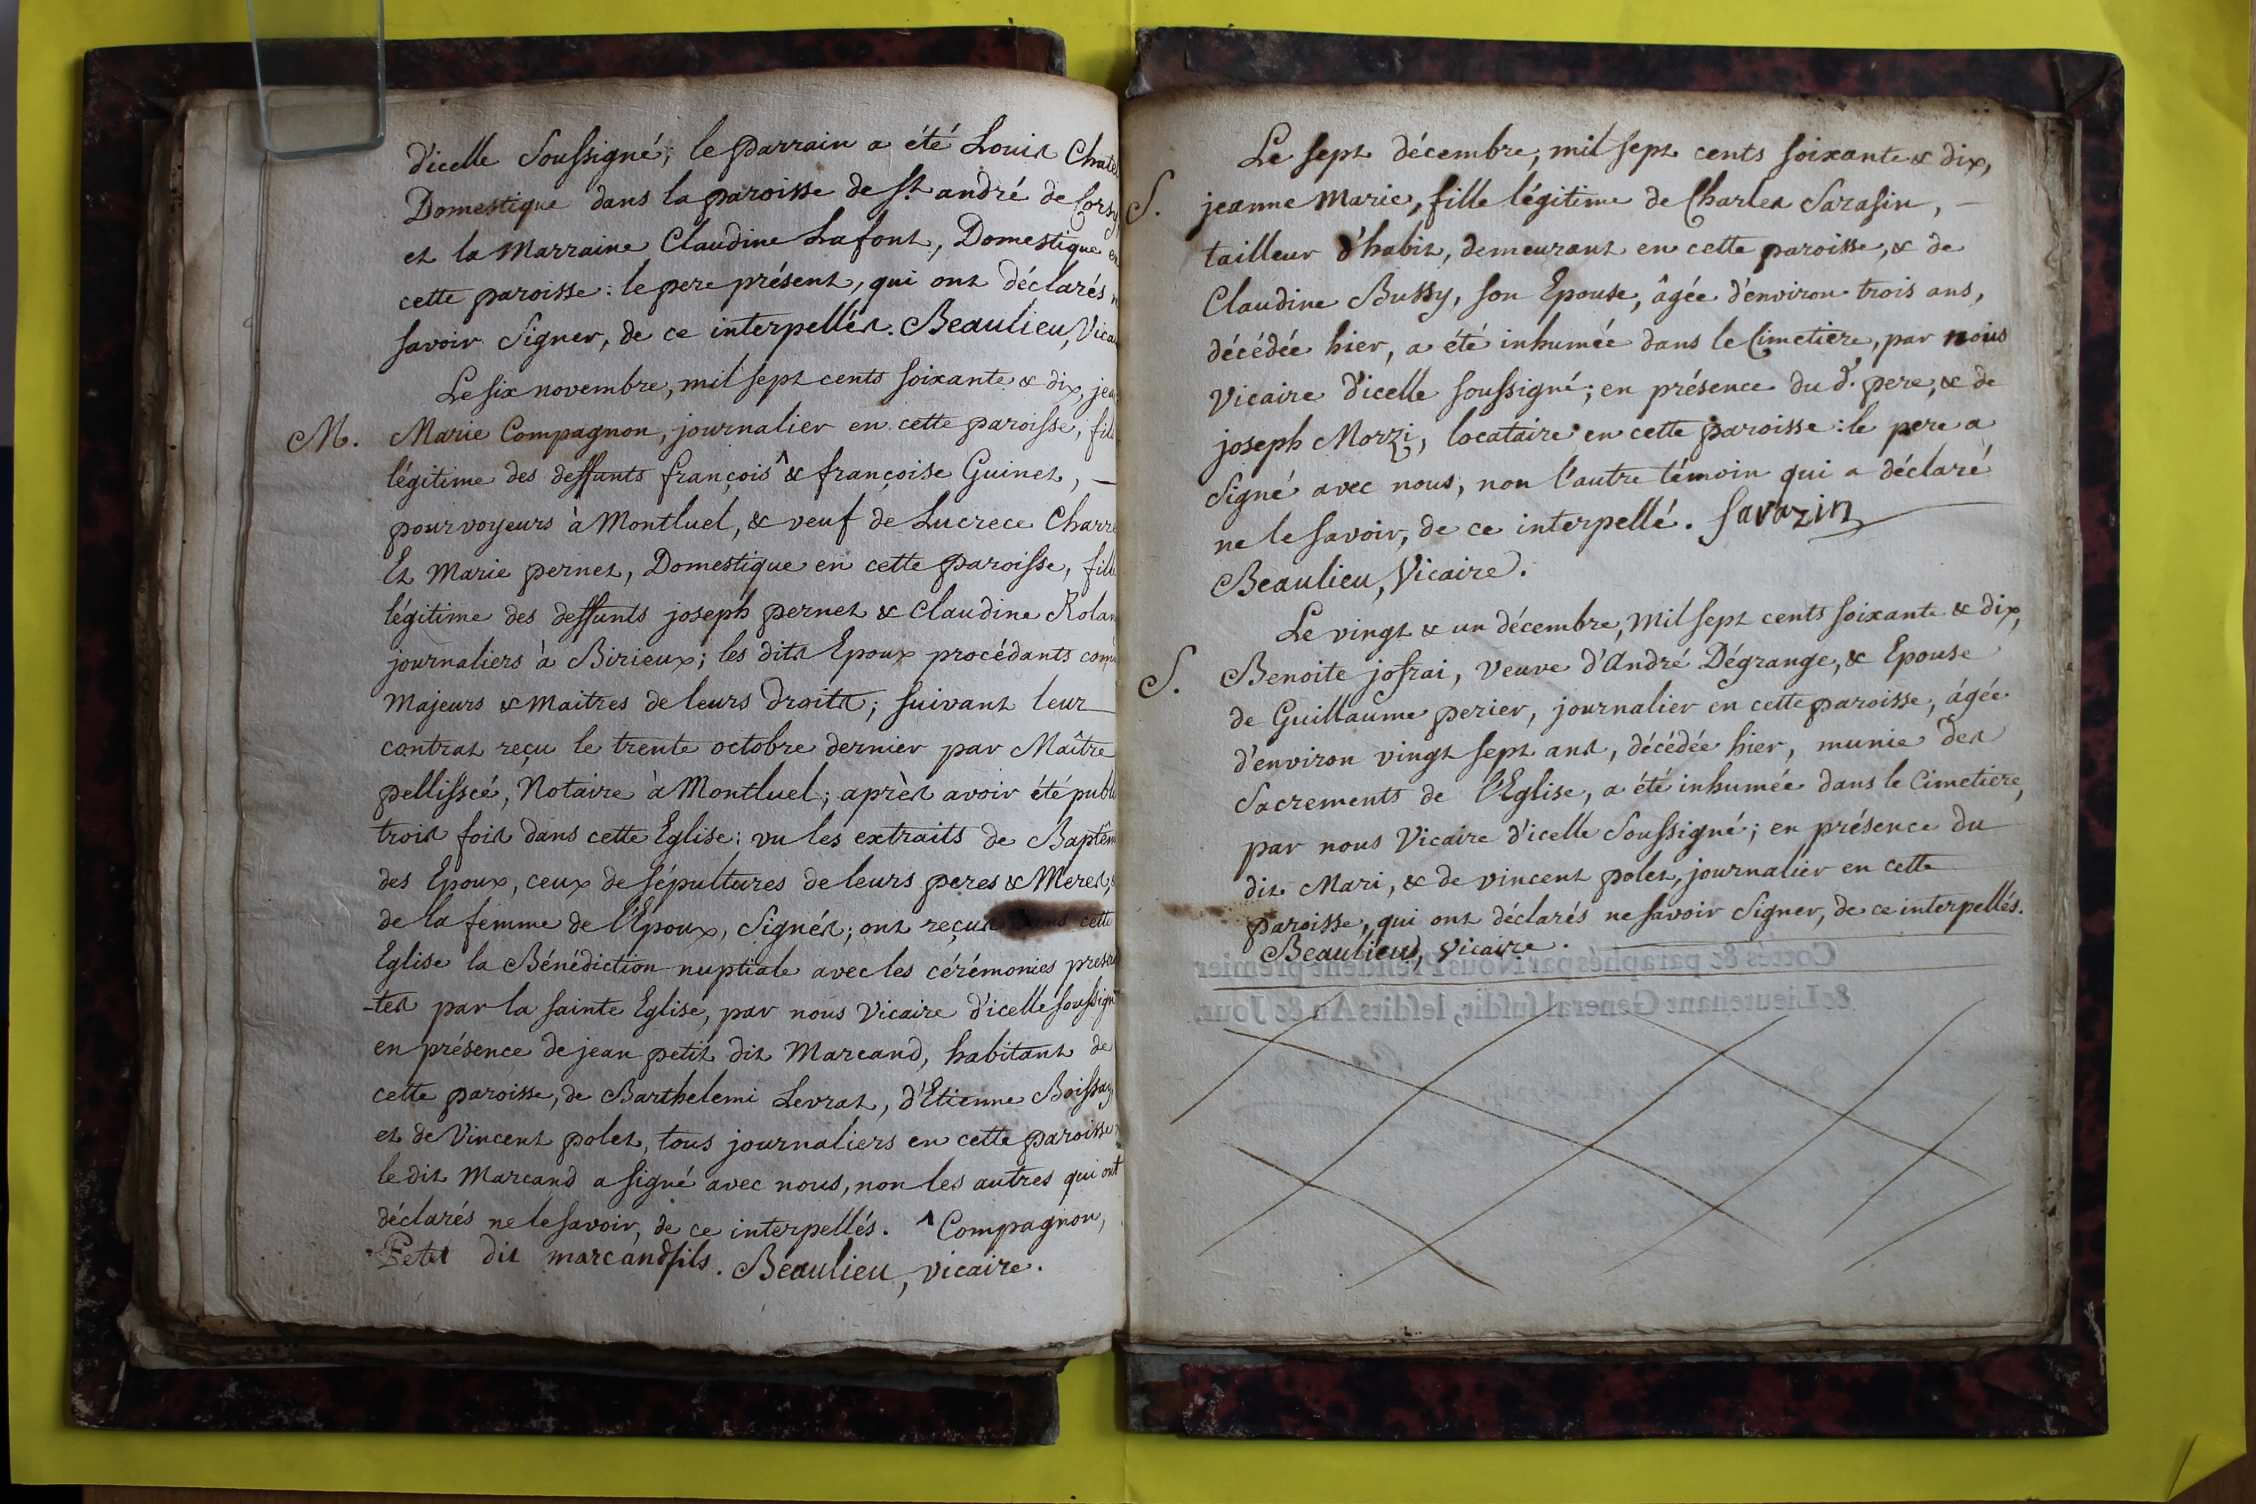 d'icelle soussigné; le parrain a été Louis
Domestique dans la paroisse de st. andré de
et la Marraine Claudine Lafont, Domestique en
cette paroisse : le pere présent, qui ont déclarés
savoir signer, de ce interpellés. Beaulieu,
Le six novembre, mil sept cents soixante & dix,
M. Marie Compagnon, journalier en cette paroisse,
légitime des deffunts françois ^ & françoise Guinet, —
pourvoyeurs à Montluel, & veuf de Lucrece
Et Marie pernet, Domestique en cette paroisse,
légitime des deffunts joseph pernet & Claudine
journaliers à Birieux; les dits Epoux procédants
majeurs & maitres de leurs droits; suivant leur
contrat reçu le trente octobre dernier par Maître
pellissée, Notaire à Montluel; après avoir été
trois fois dans cette Eglise : vu les extraits de
des Epoux, ceux de sépultures de leurs peres & Meres,
de la femme de l'Epoux, signés; ont reçus dans cette
Eglise la Bénédiction nuptiale avec les cérémonies
-tes par la sainte Eglise, par nous Vicaire d'icelle
en présence de jean petit dit Marcand, habitant de
cette paroisse, de Barthelemi Levrat, d'Etienne
et de Vincent polet, tous journaliers en cette paroisse
le dit Marcand a signé avec nous, non les autres qui ont
déclarés ne le savoir, de ce interpellés. ^ Compagnon,
Petit dit marcand fils. Beaulieu, vicaire.
Le sept décembre, mil sept cents soixante & dix,
S. jeanne Marie, fille légitime de Charles Sarasin, —
tailleur d'habit, demeurant en cette paroisse, & de
Claudine Bussy, son Epouse, âgée d'environ trois ans,
décédée hier, a été inhumée dans le Cimetiere, par nous
Vicaire d'icelle soussigné; en présence du d. pere, & de
joseph Morzi, locataire en cette paroisse : le pere a
signé avec nous, non l'autre témoin qui a déclaré
ne le savoir, de ce interpellé. Sarazin
Beaulieu, Vicaire.
Le vingt & un décembre, Mil sept cents soixante & dix,
S. Benoite josrai, veuve d'André Dégrange, & Epouse
de Guillaume perier, journalier en cette paroisse, âgée
d'environ vingt sept ans, décédée hier, munie des
Sacrements de l'Eglise, a été inhumée dans le Cimetiere,
par nous Vicaire d'icelle soussigné; en présence du
dit Mari, & de vincent polet, journalier en cette
paroisse, qui ont déclarés ne savoir signer, de ce interpellés.
Beaulieu, vicaire.
Cottés & paraphés par Nous President premier
& Lieutenant General susdit, lesdits An & Jour.